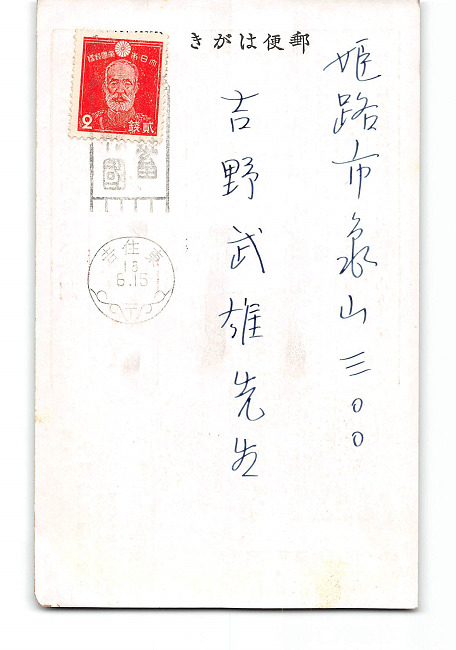 郵便はがき
姫路市亀山三〇〇
吉野武雄先生
大日本帝國郵便
2
貳錢
住吉
18
6.15